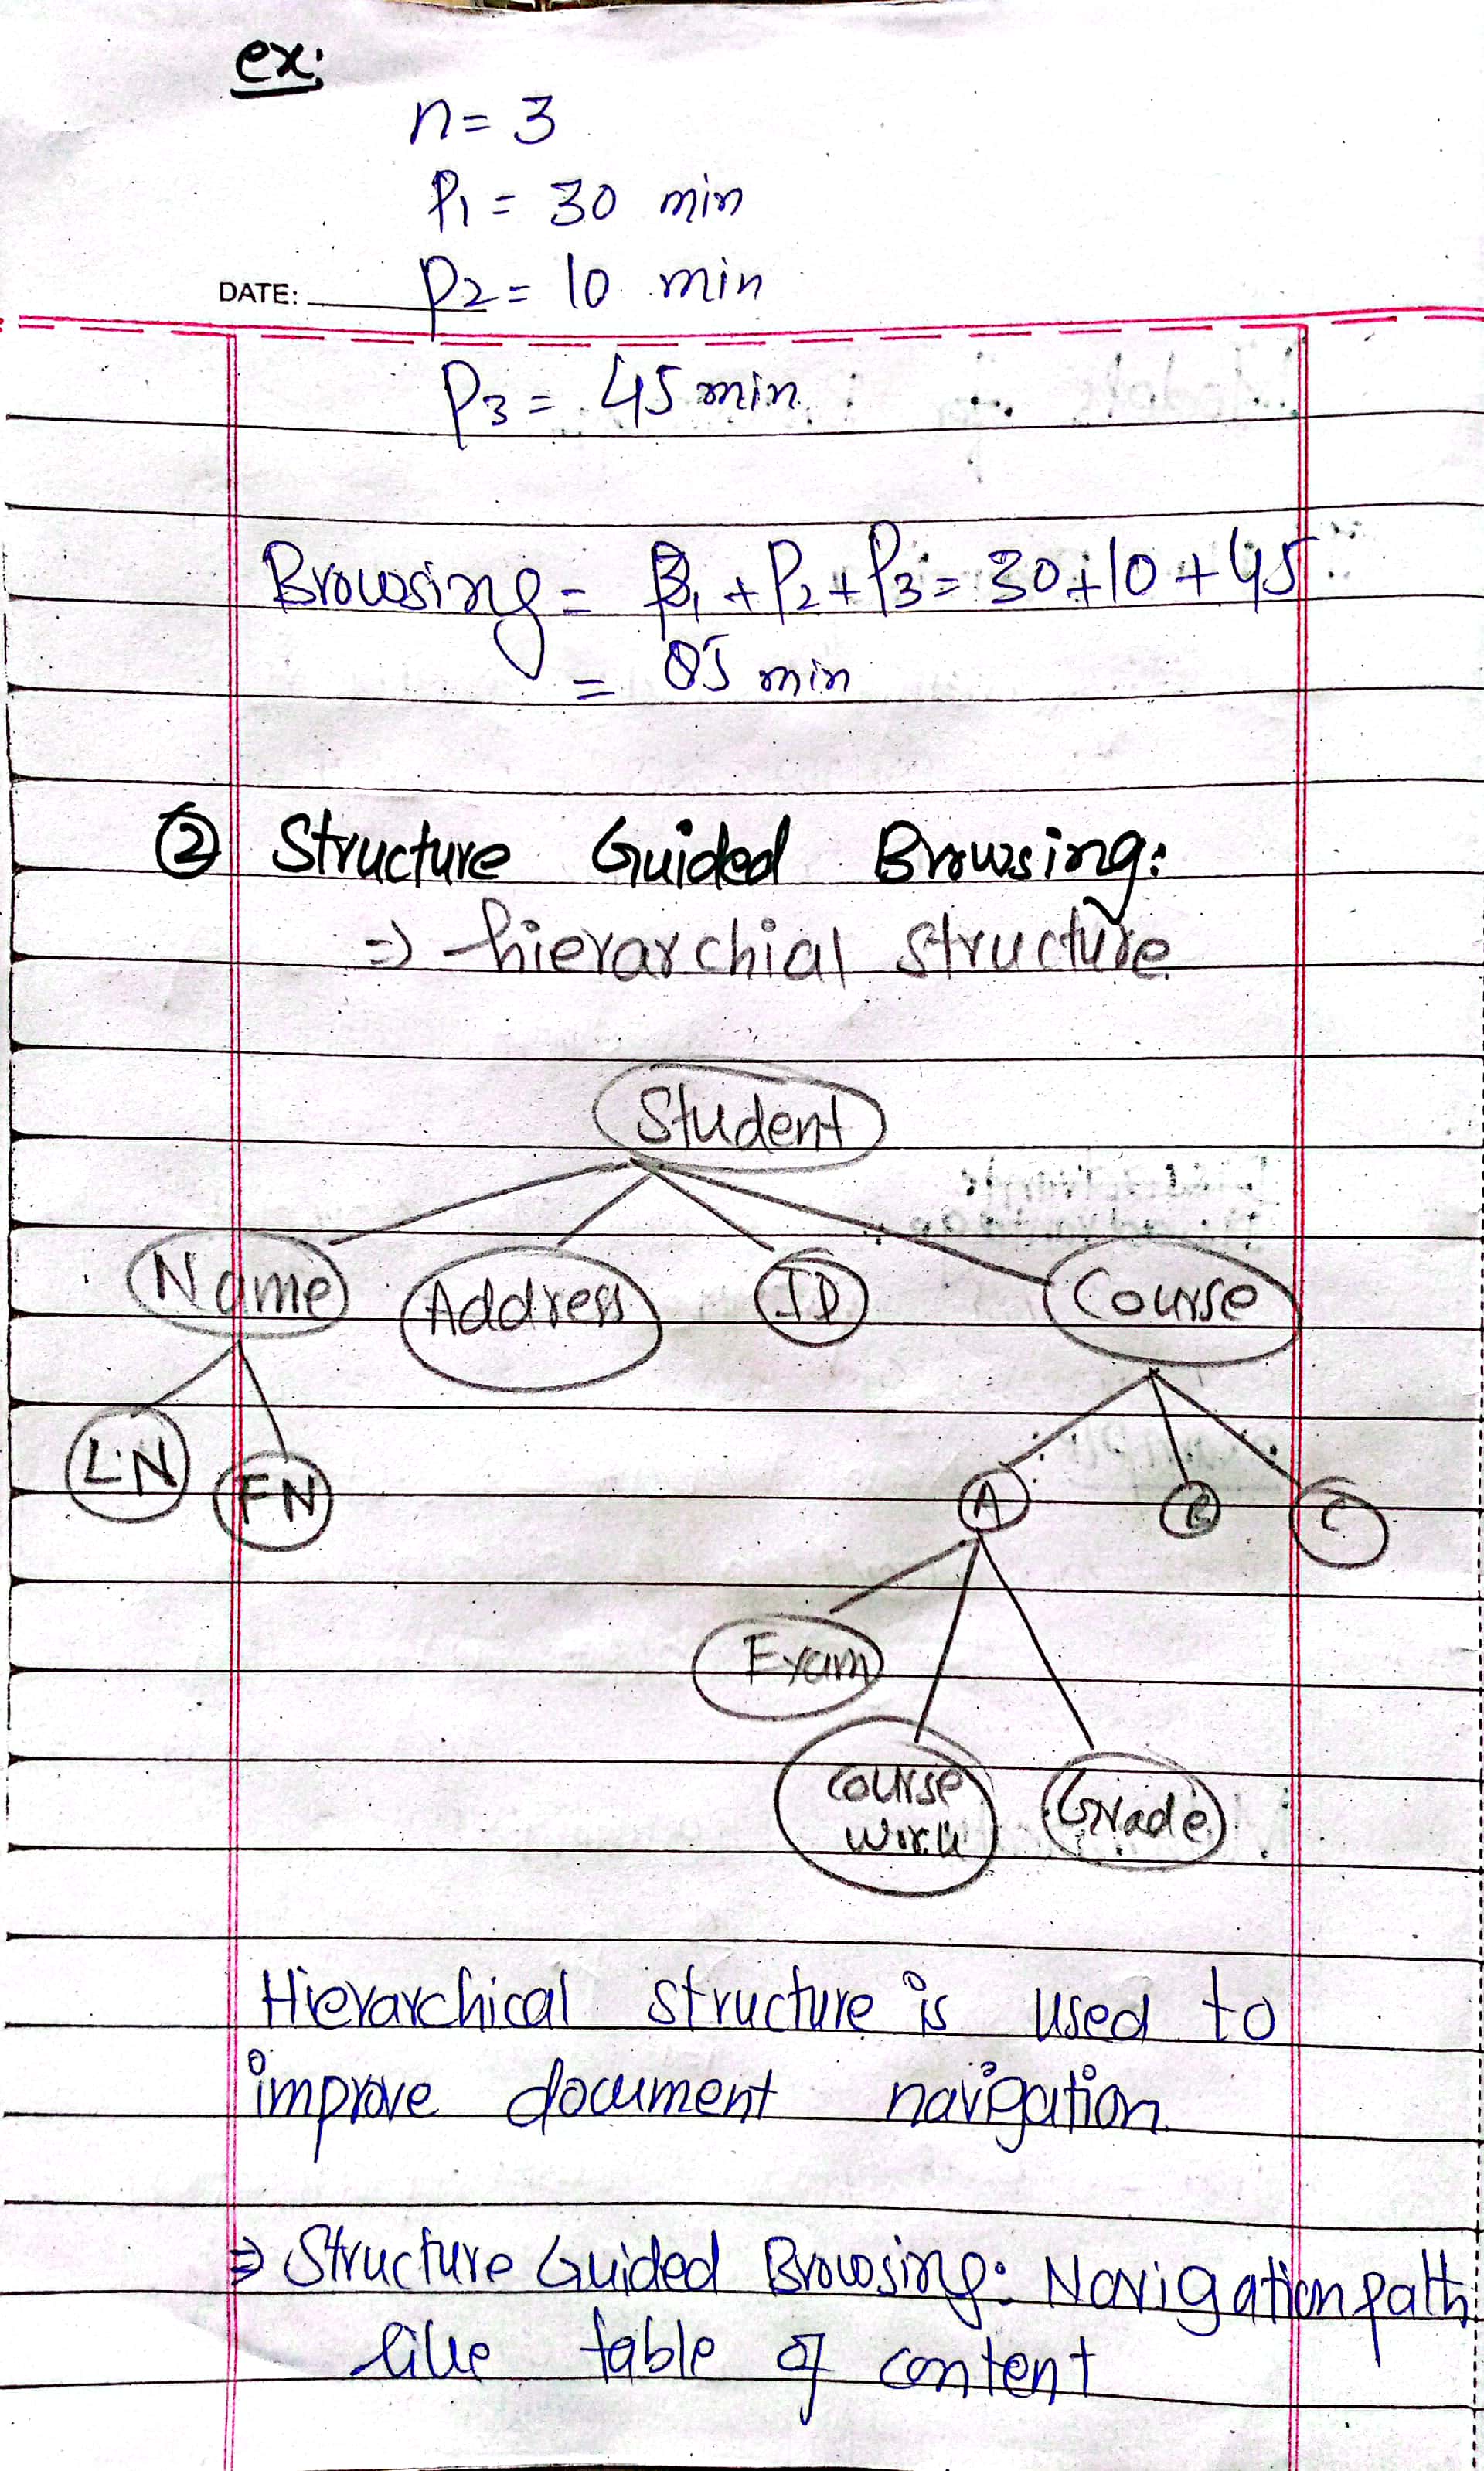 ex:
n = 3
P1 = 30 min
DATE: P2 = 10 min
P3 = 45 min
Browsing = P1 + P2 + P3 = 30 + 10 + 45
= 85 min
② Structure Guided Browsing:
⇒ hierarchial structure
Student
Name Address ID Course
LN FN A B C
Exam
Course Grade
work
Hierarchical structure is used to
improve document navigation
⇒ Structure Guided Browsing: Navigation path
like table of content